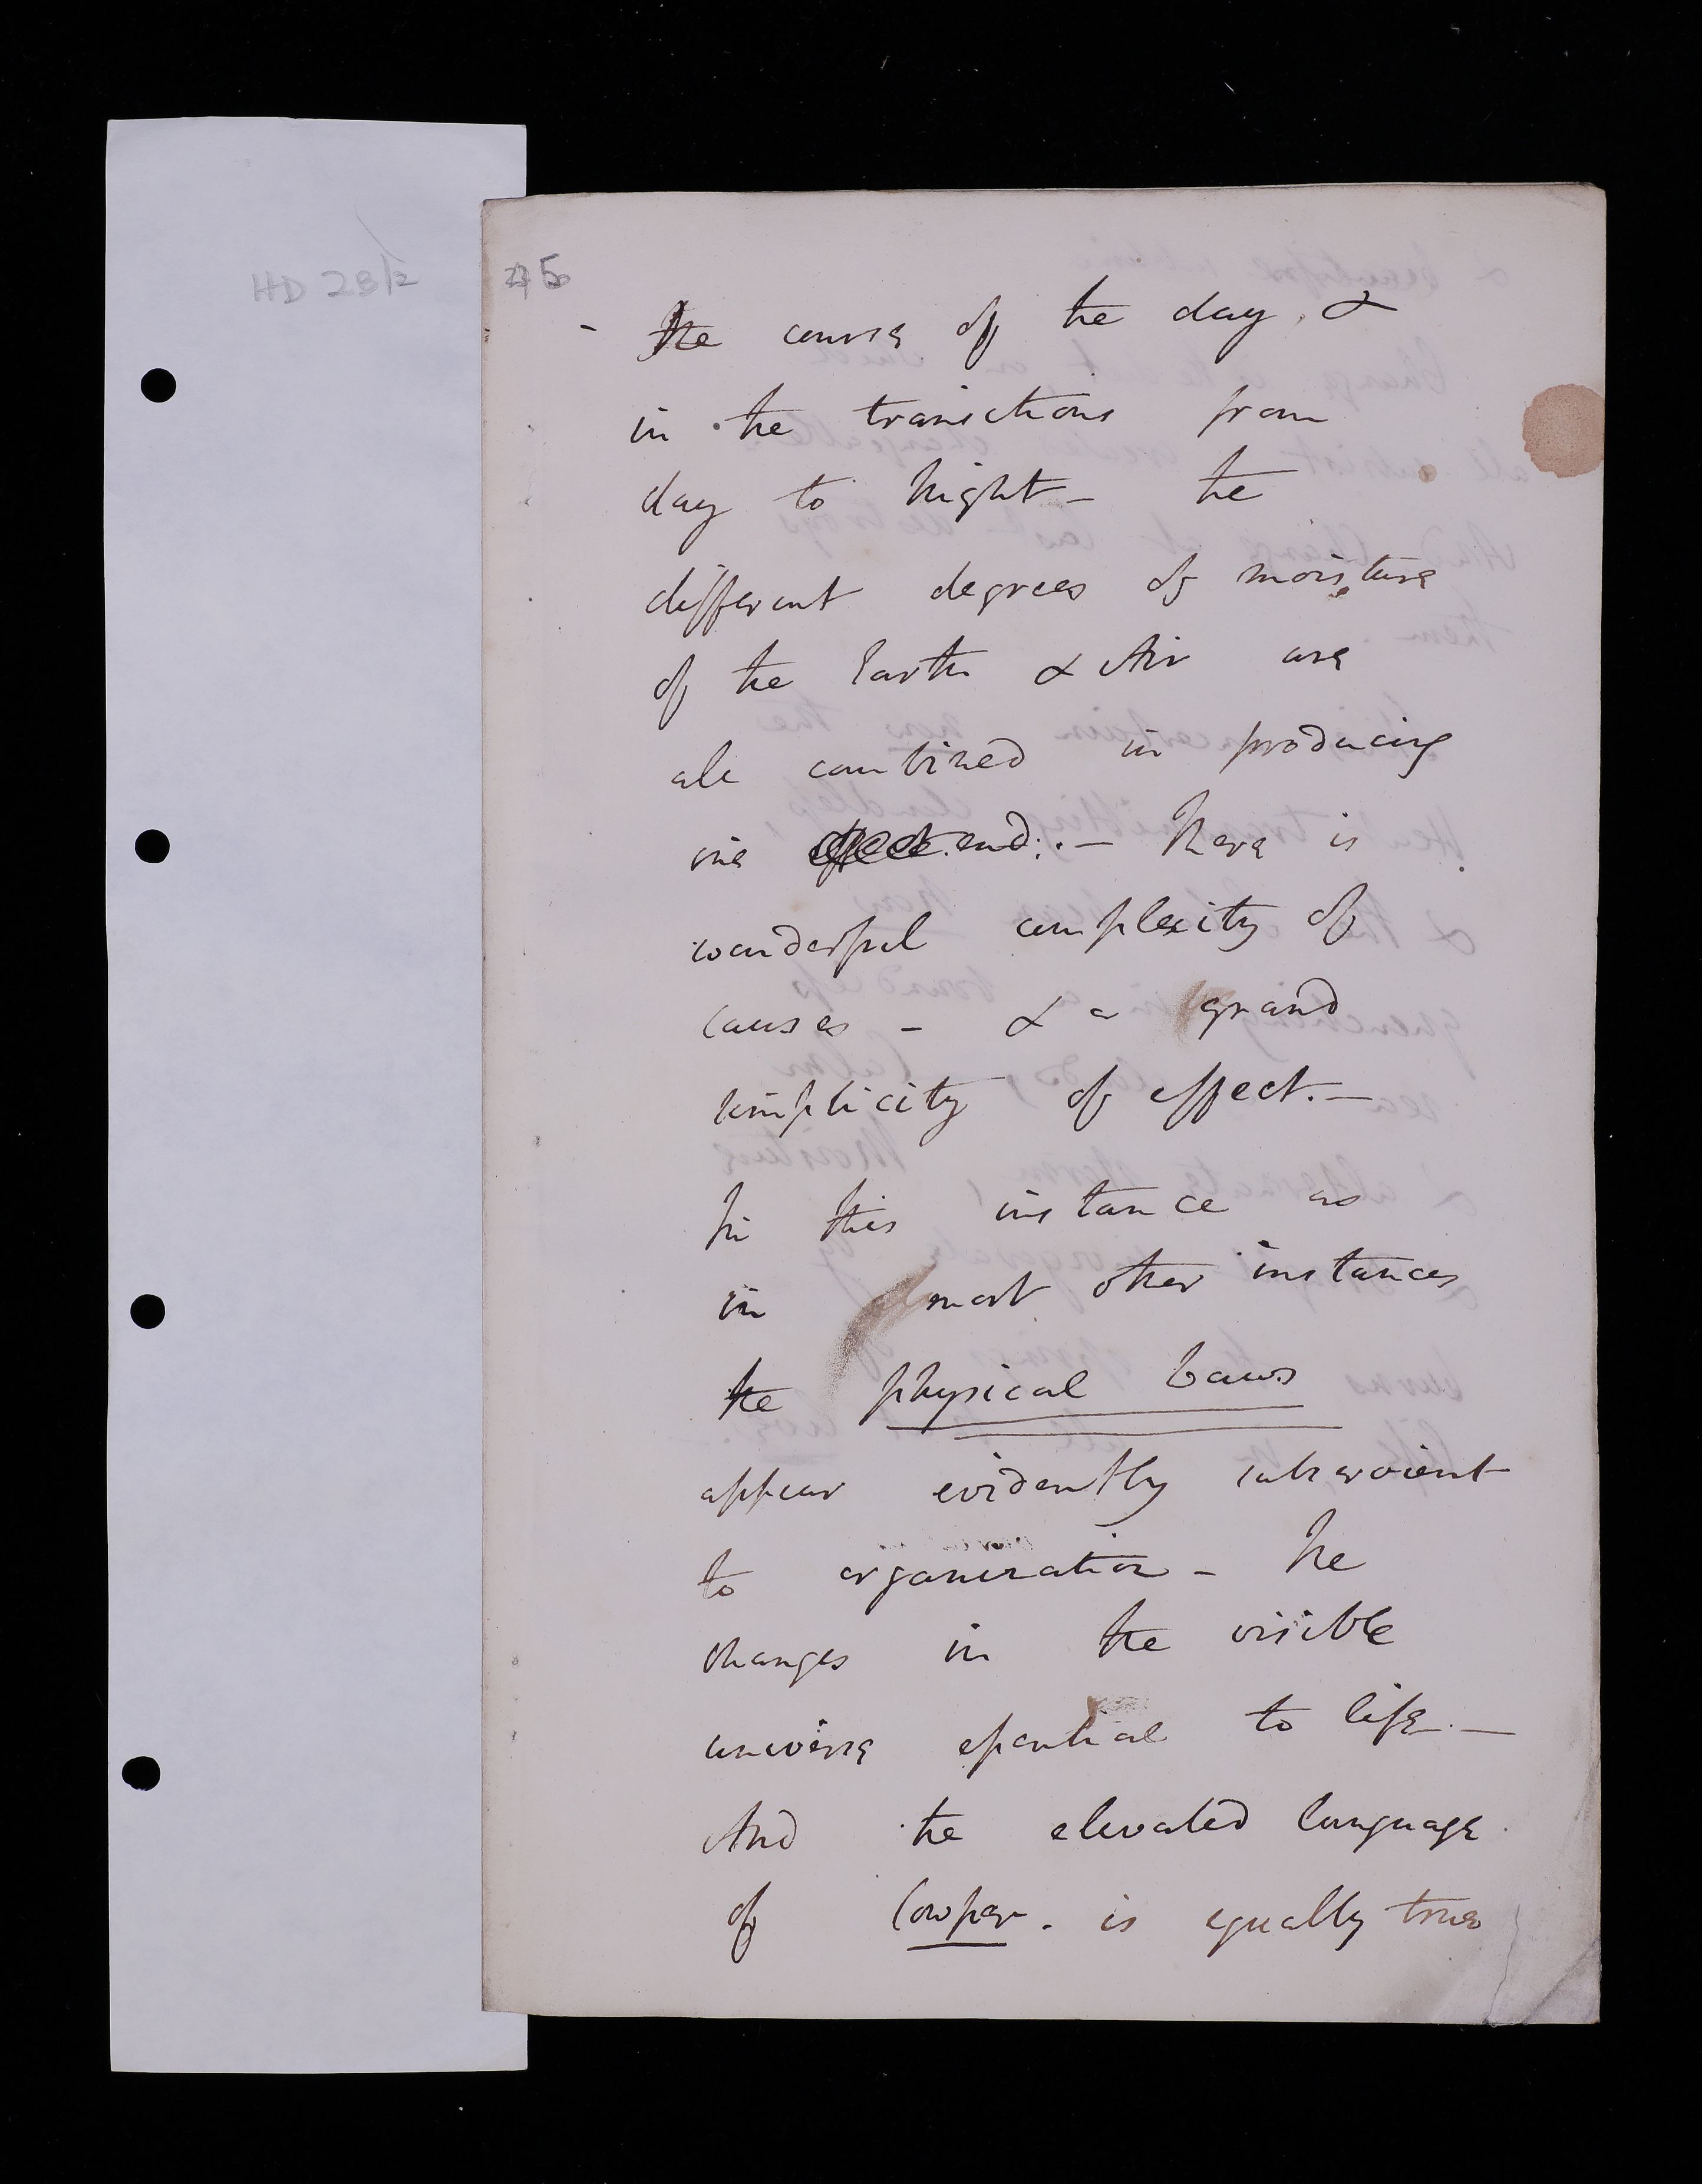 HD 28/2
45
- The course of the day. &
in the transitions from
day to Night – the
different degrees of moisture
of the Earth & Air are
all combined in producing
one effect end: . – There is
wonderful complexity of
causes – & a grand
simplicity of effect. –
In this instance as
in most other instances
the physical Laws
appear evidently subservient
to organization – The
changes in the visible
universe essential to life. –
And the elevated language
of Cowper. is equally true